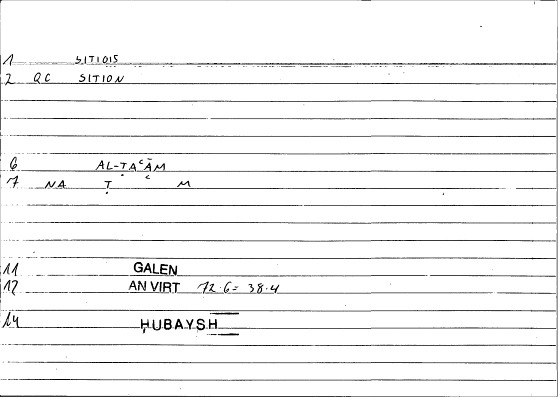 1 SITIOIS
2 QC SITION
6 AL-ṬAʿĀM
7 NA Ṭ ʿ M
11 GALEN
12 AN VIRT 12·6= 38·4
14 ḤUBAYSH